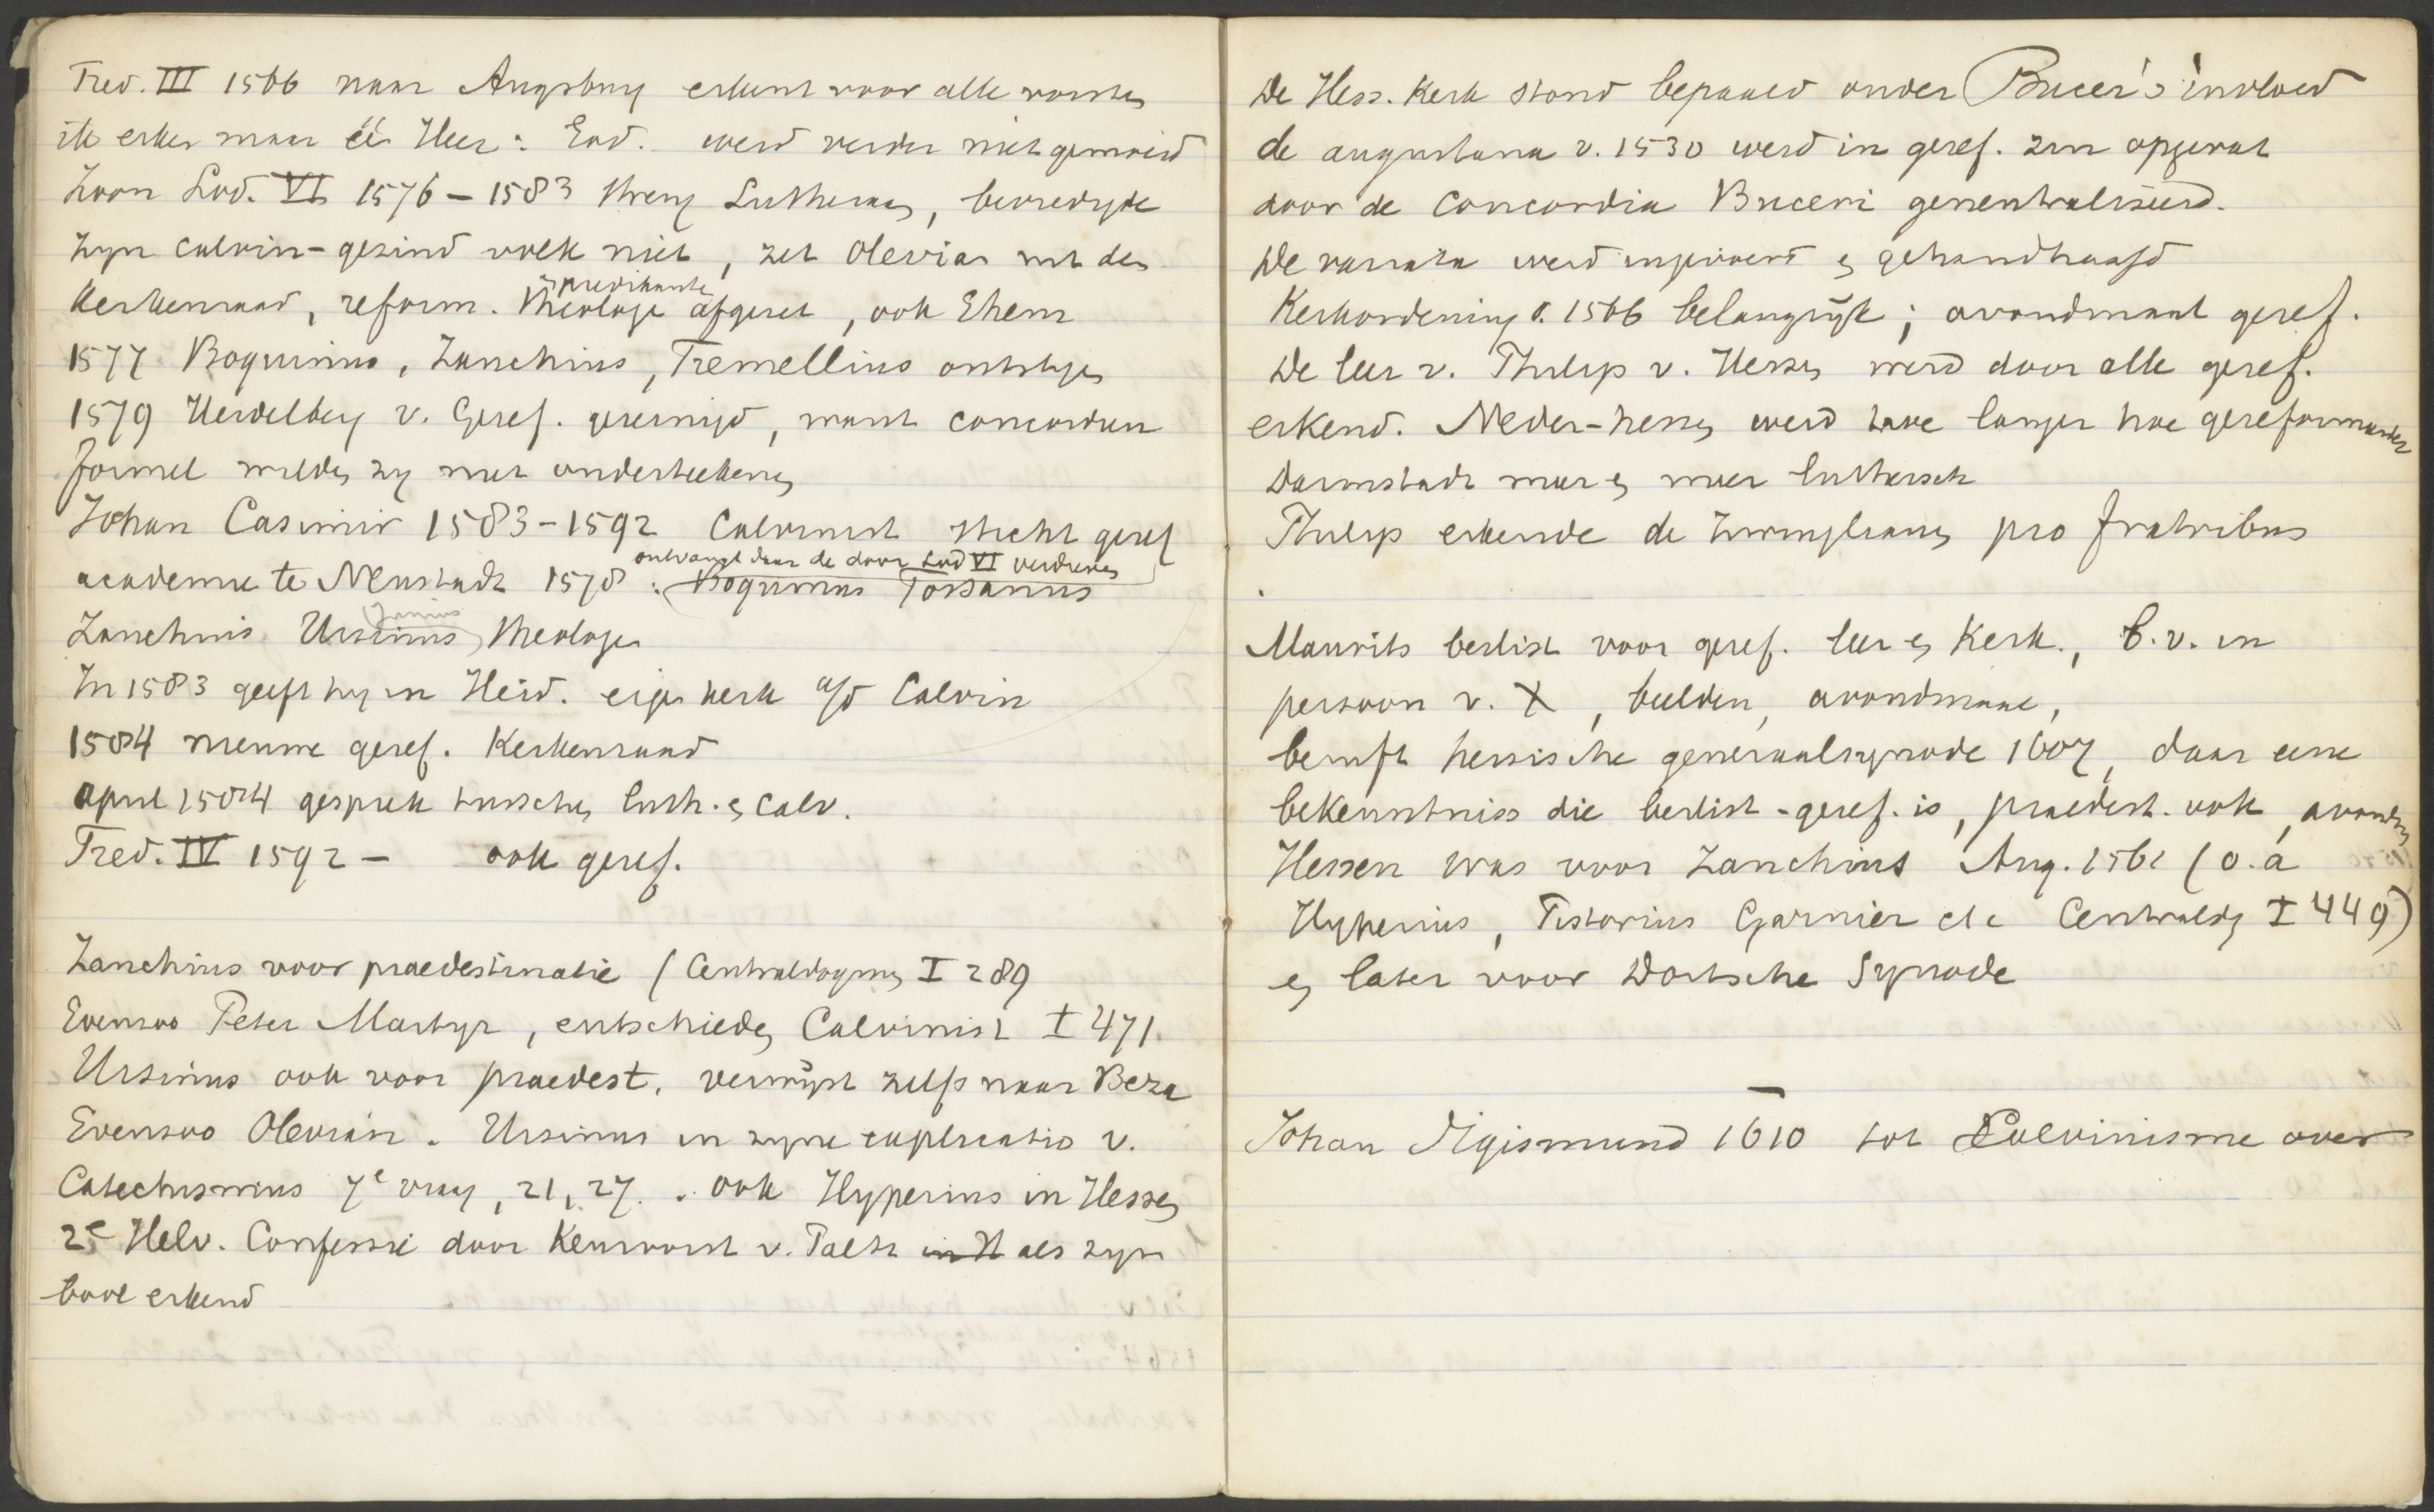 Fred. III 1566 naar Augsburg erkent voor alle vorsten
ik erken maar één Heer: God. werd verder niet gemoeid
Zoon Lod. VI 1576 – 1583 streng Luthersch, bevredigde
zijn calvin-gezind volk niet, zet Olevian uit den
kerkenraad, reform. theologen afgezet, ook Ehem
en predikanten
1577 Boquinus, Zanchius, Tremellius ontslagen
1579 Heidelberg v. Geref. gereinigd, want concordien
formel wilden zij niet onderteekenen
Johan Casimir 1583-1592 Calvinist sticht geref
academie te Neustadt 1578 : Boquinus Tossanus
ontvangt daar de door Lod VI verdreven
Zanchius Ursinus, theologen
Junius
In 1583 geeft hij in Heid. eigen kerk a/d Calvin
1584 nieuwe geref. Kerkenraad
april 1584 gesprek tusschen luth. en calv.
Fred. IV 1592 – ook geref.
Zanchius voor praedestinatie (Centraldogmen I 289
Evenzoo Peter Martyr, entschieden Calvinist I 471.
Ursinus ook voor praedest. verwijst zelfs naar Beza
Evenzoo Olevian. Ursinus in zijne explicatio v.
Catechismus 7e vraag, 21, 27. . ook Hyperius in Hessen
2e Helv. Confessie door Keurvorst v. Palts in H als zijn
bool erkend
De Hess. Kerk stond bepaald onder Bucer's invloed
de augustana v. 1530 werd in geref. zin opgevat
door de Concordia Buceri geneutraliseerd.
De variata werd ingevoerd en gehandhaafd
Kerkordening v. 1566 belangrijk; avondmaal geref.
De leer v. Philips v. Hessen werd door alle geref.
erkend. Neder-hessen werd hoe langer hoe gereformeerder
Darmstadt meer en meer luthersch
Philips erkende de Zwinglianen pro fratribus
Maurits beslist voor geref. leer en Kerk., b.v. in
persoon v. X, beelden, avondmaal,
beruft hessische generaalsynode 1607, daar eene
bekenntniss die beslist - geref. is, praedest. ook, avondm
Hessen was voor Zanchius Aug. 1561 (o.a
Hyperius, Pistorius Garnier etc Centraldg I 449)
en later voor Dortsche Synode
Johan Sigismund 1610 tot Calvinisme over